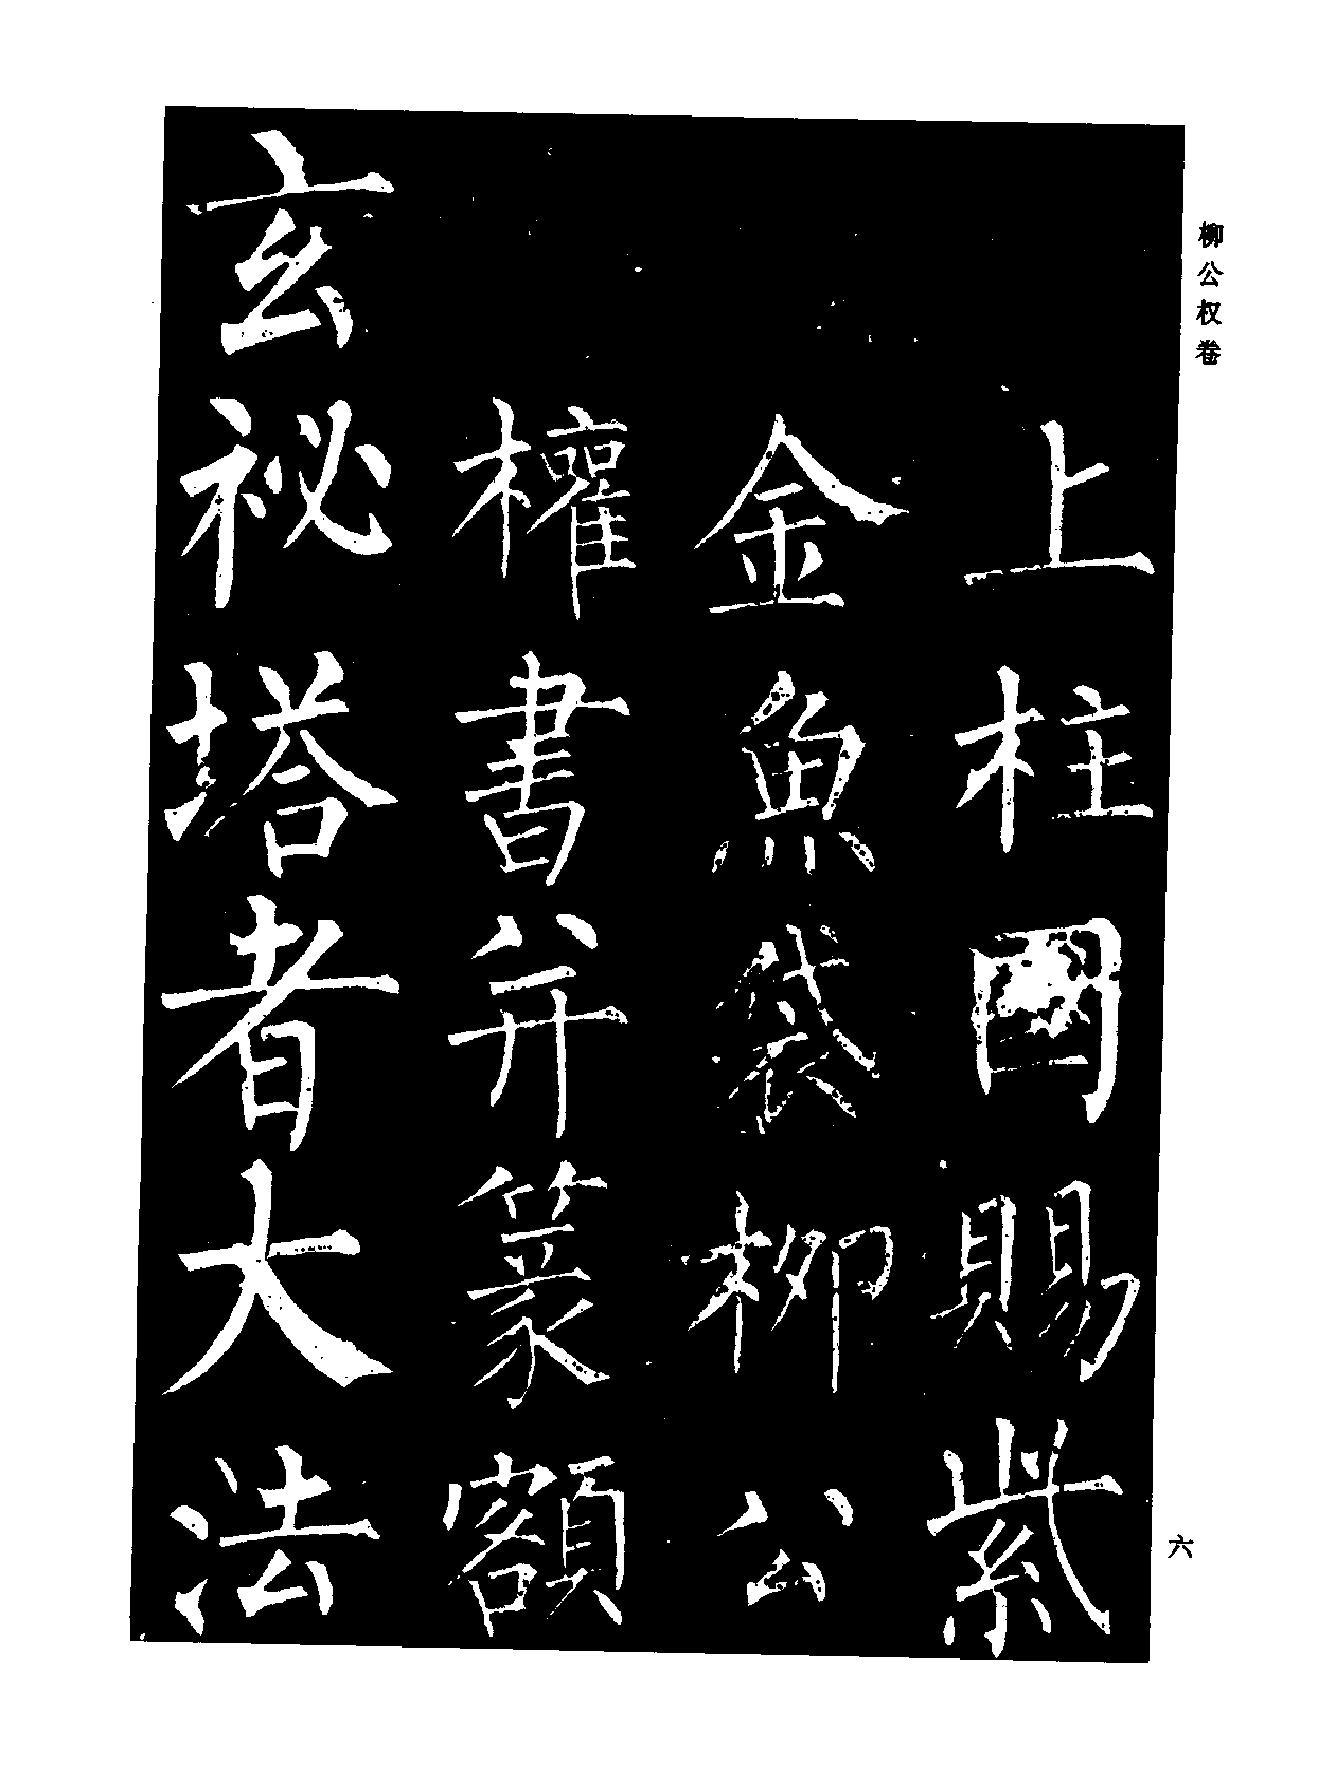 柳公权卷
上柱國賜紫
金魚袋柳公
權書并篆額
玄祕塔者大法
六